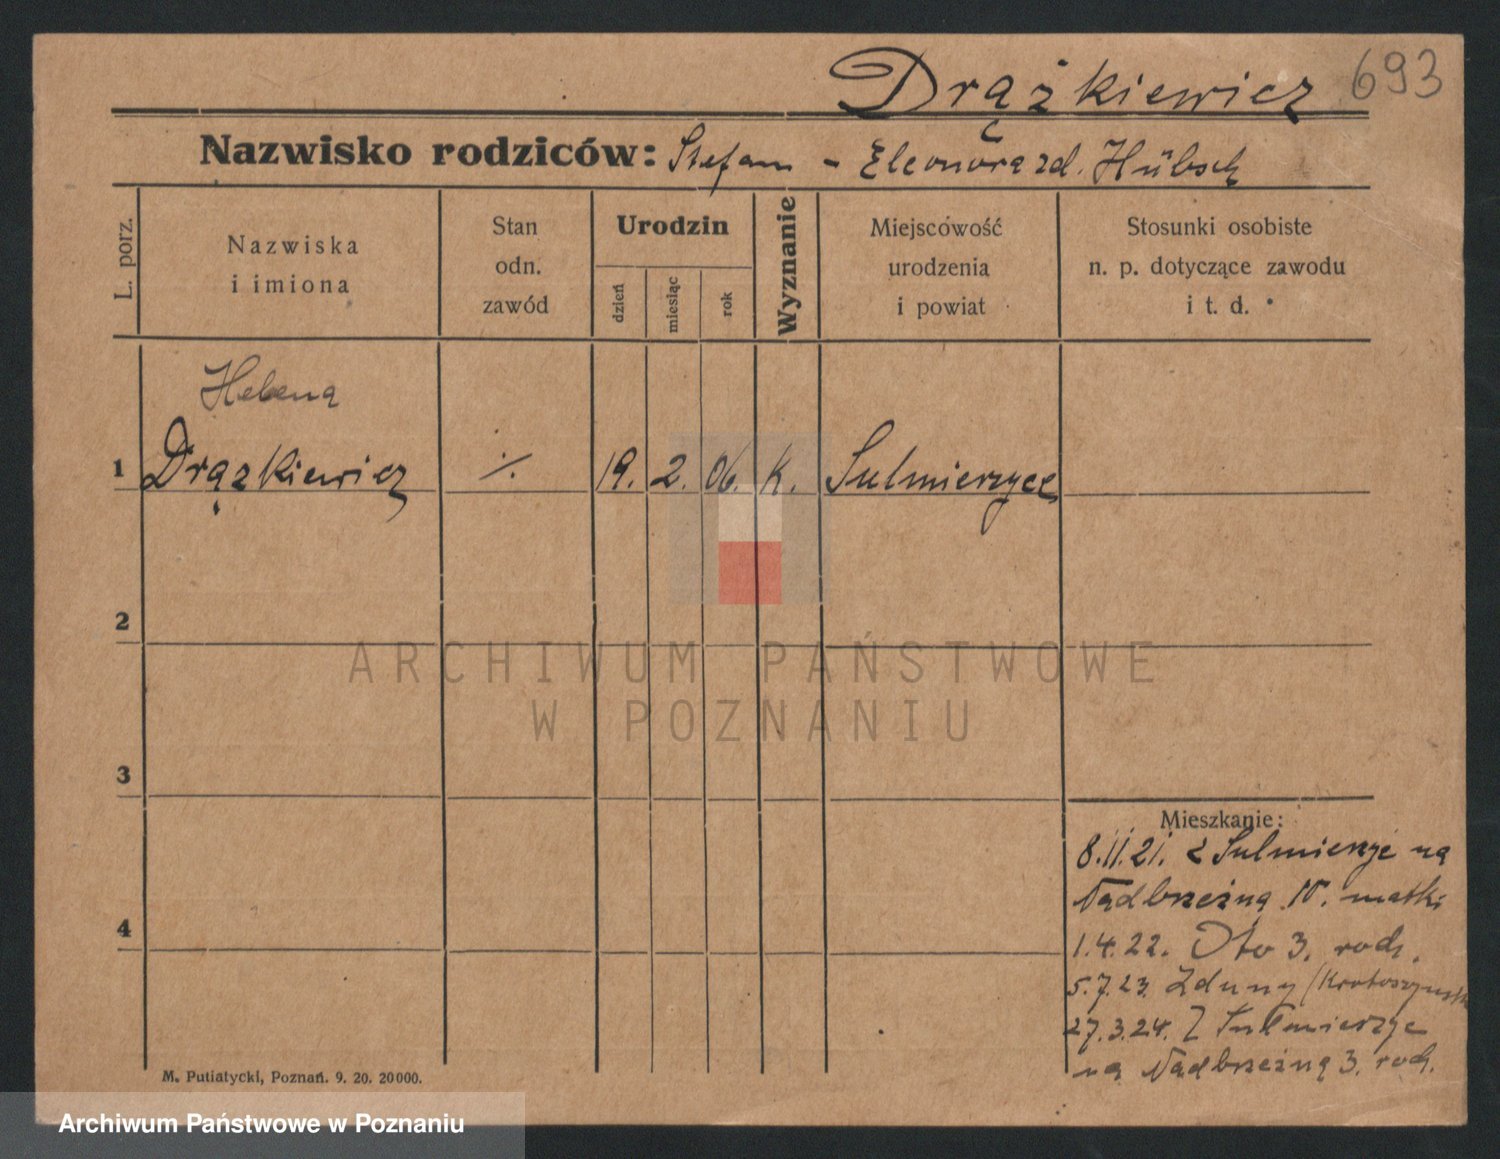 Drążkiewicz 693
Nazwisko rodziców: Stefan - Eleonora zd. Hübsch
L. porz.
Nazwiska
i imiona
Stan
odn.
zawód
Urodzin
dzień
miesiąc
rok
Wyznanie
Miejscowość
urodzenia
i powiat
Stosunki osobiste
n. p. dotyczące zawodu
i t. d.
Helena
1 Drążkiewicz ./. 19. 2. 06. k. Sulmierzyce
2
ARCHIWUM PAŃSTWOWE
W POZNANIU
3
Mieszkanie:
8.11.21. z Sulmierzyc na
Nadbrzeżną 10. matki
4
1.4.22. Oto 3. rodz.
5.7.23. Zduny (Krotoszyn
27.3.24. Z Sulmierzyc
na Nadbrzeżną 3. rodz.
M. Putiatycki, Poznań. 9. 20. 20000.
Archiwum Państwowe w Poznaniu